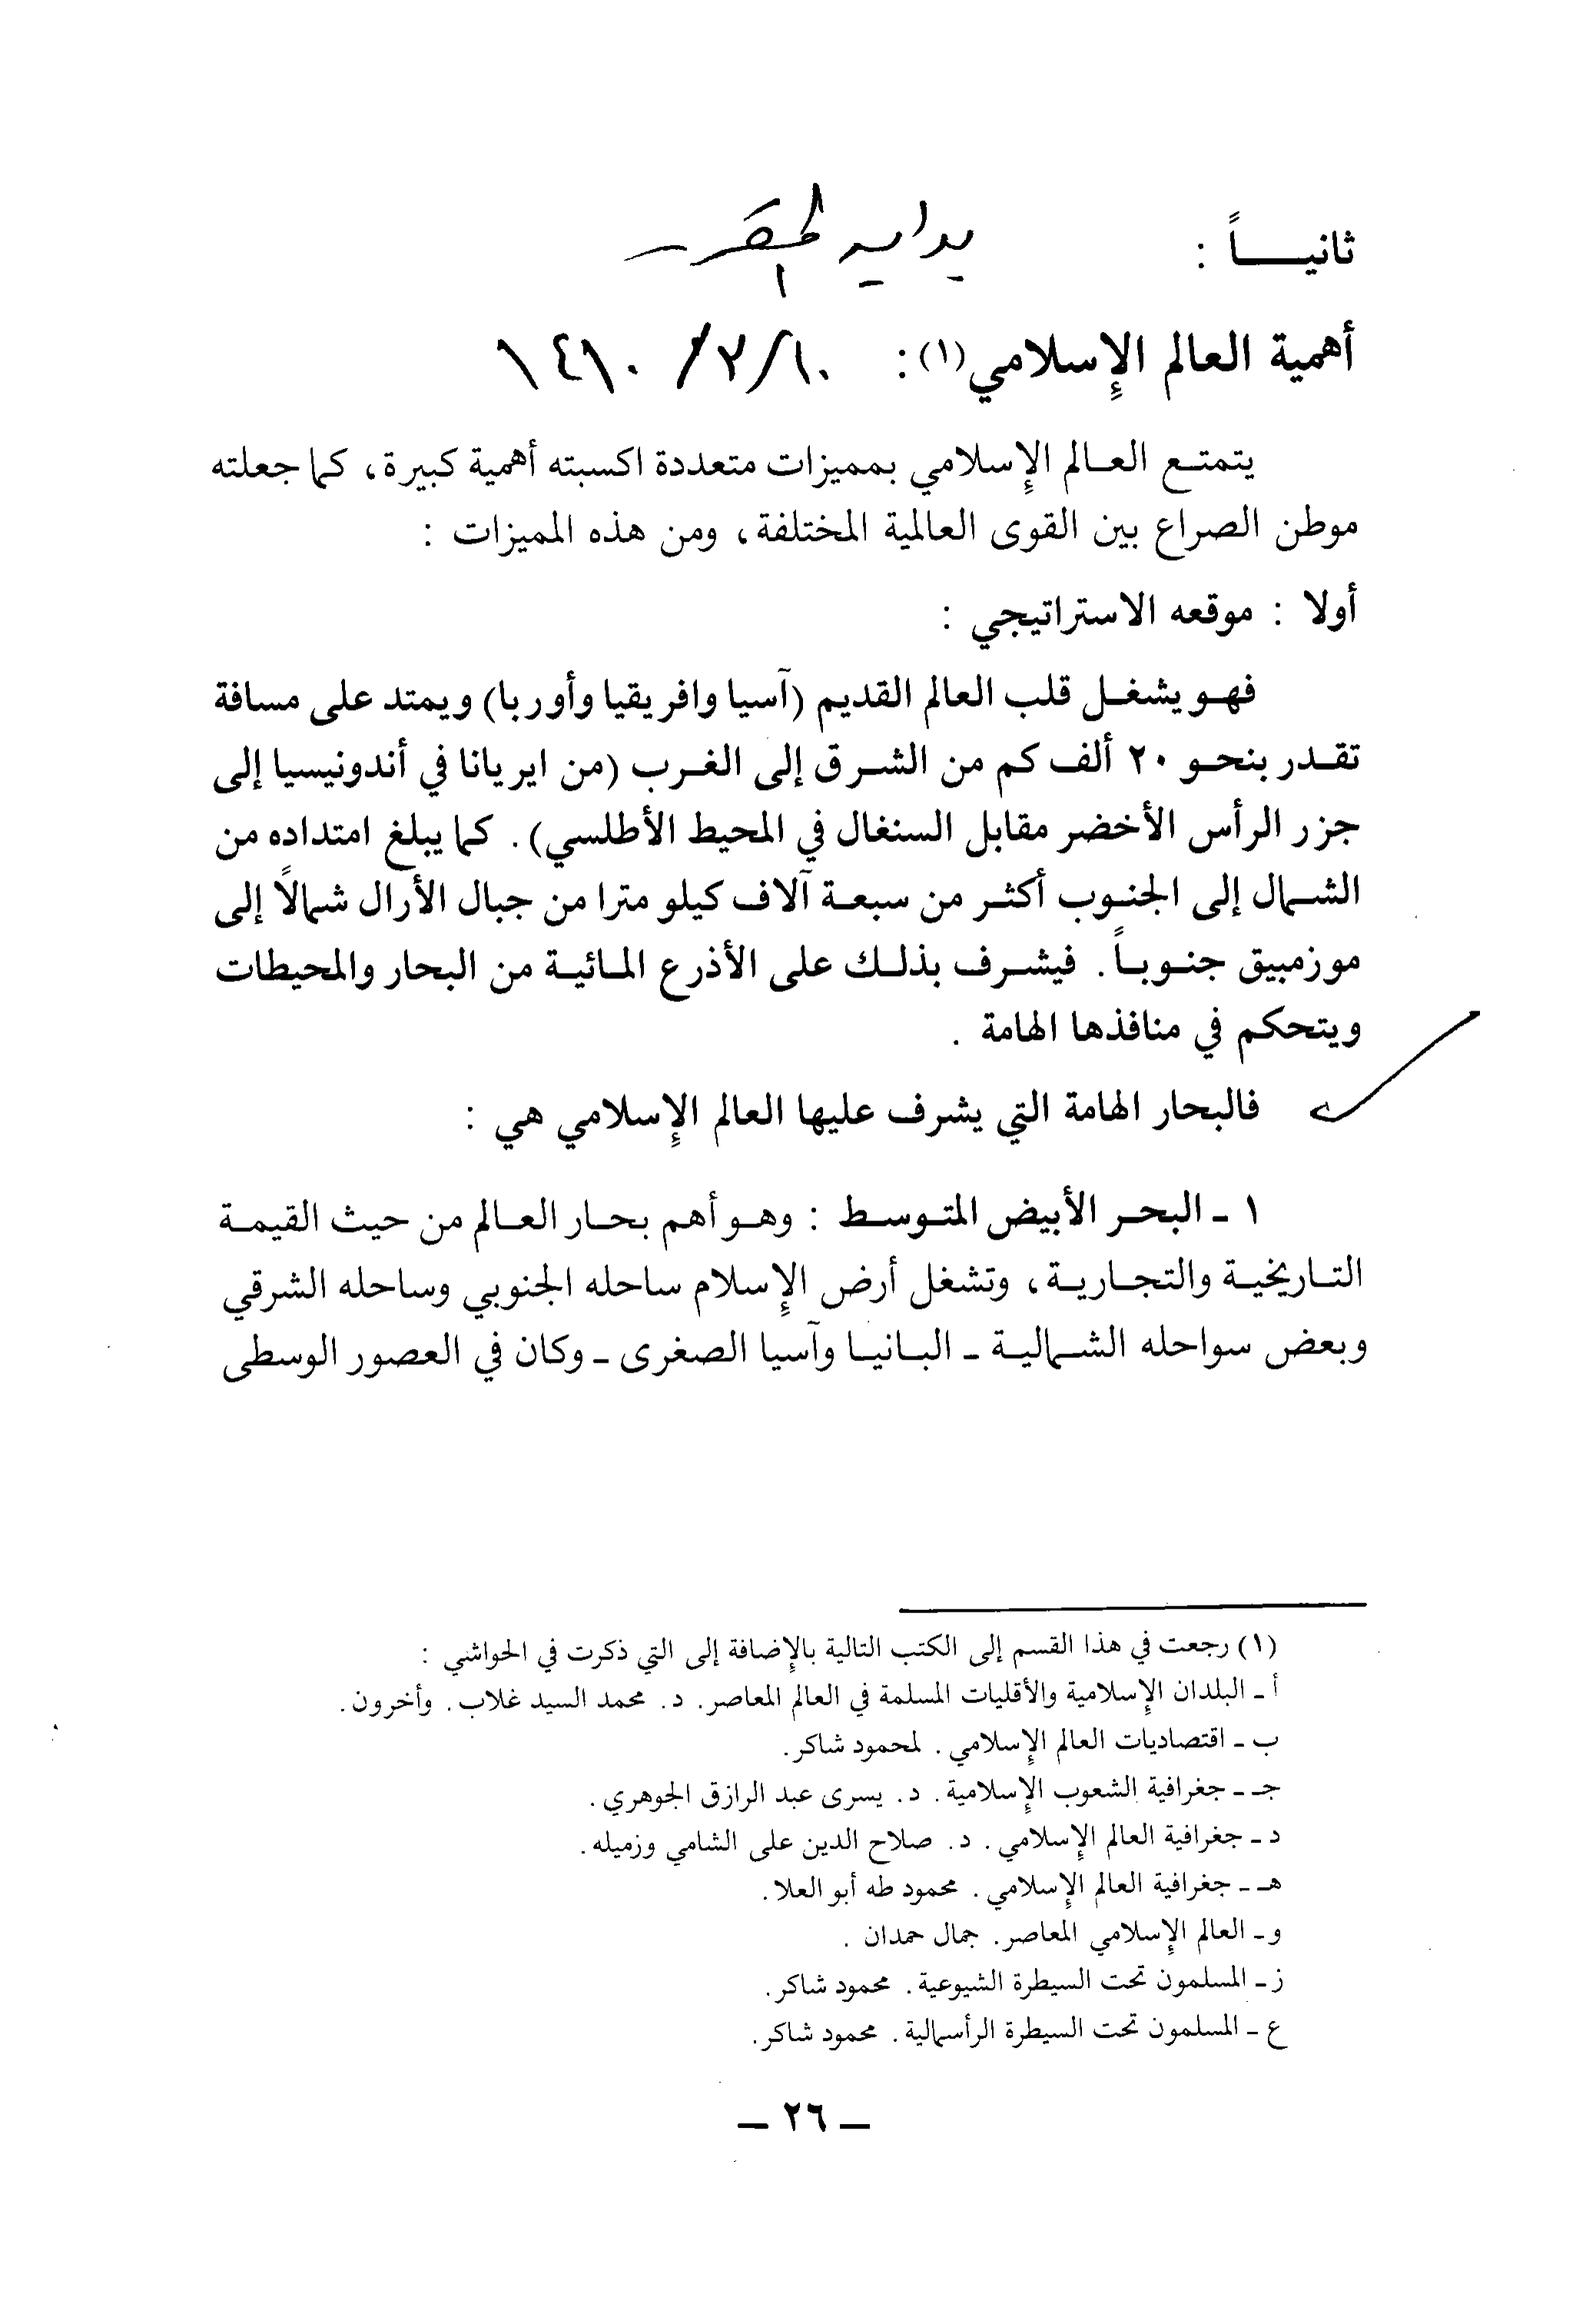 ثانيـــاً :
بداية المقرر
أهمية العالم الإسلامي(١): ١٠/٢/١٤١٠
يتمتع العالم الإسلامي بمميزات متعددة اكسبته أهمية كبيرة، كما جعلته
موطن الصراع بين القوى العالمية المختلفة، ومن هذه المميزات :
أولا : موقعه الاستراتيجي :
فهو يشغل قلب العالم القديم (آسيا وافريقيا وأوربا) ويمتد على مسافة
تقدر بنحو ٢٠ ألف كم من الشرق إلى الغرب (من ايريانا في أندونيسيا إلى
جزر الرأس الأخضر مقابل السنغال في المحيط الأطلسي). كما يبلغ امتداده من
الشمال إلى الجنوب أكثر من سبعة آلاف كيلو مترا من جبال الأرال شمالاً إلى
موزمبيق جنوباً. فيشرف بذلك على الأذرع المائية من البحار والمحيطات
ويتحكم في منافذها الهامة .
فالبحار الهامة التي يشرف عليها العالم الإسلامي هي :
١ ـ البحر الأبيض المتوسط : وهو أهم بحار العالم من حيث القيمة
التاريخية والتجارية، وتشغل أرض الإسلام ساحله الجنوبي وساحله الشرقي
وبعض سواحله الشمالية ـ البانيا وآسيا الصغرى ـ وكان في العصور الوسطى
(١) رجعت في هذا القسم إلى الكتب التالية بالإضافة إلى التي ذكرت في الحواشي :
أ ـ البلدان الإسلامية والأقليات المسلمة في العالم المعاصر. د. محمد السيد غلاب. وأخرون.
ب ـ اقتصاديات العالم الإسلامي. لمحمود شاكر.
جـ ـ جغرافية الشعوب الإسلامية. د. يسرى عبد الرازق الجوهري.
د ـ جغرافية العالم الإسلامي. د. صلاح الدين على الشامي وزميله.
هـ ـ جغرافية العالم الإسلامي. محمود طه أبو العلا.
و ـ العالم الإسلامي المعاصر. جمال حمدان .
ز ـ المسلمون تحت السيطرة الشيوعية. محمود شاكر.
ع ـ المسلمون تحت السيطرة الرأسمالية. محمود شاكر.
ـ ٢٦ ـ